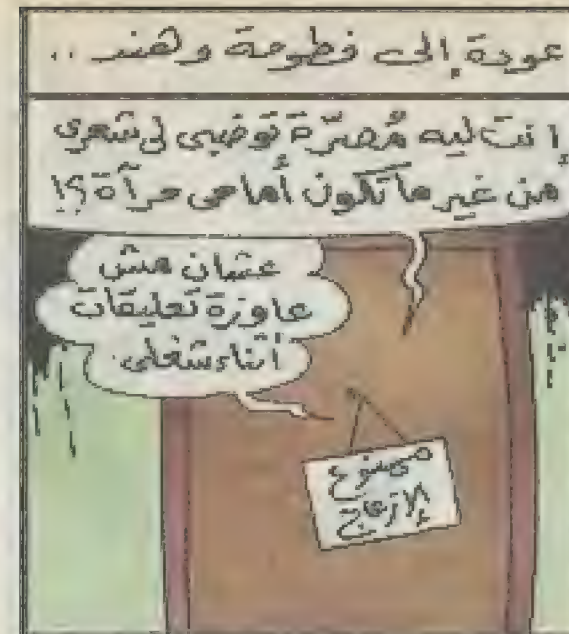 عودة إلى فطومة وهند ..
إنت ليه مُصرّة توضبى لى شعرى
من غير ما تكون أمامى مرآة ؟!
عشان مش
عاوزة تعليقات
أثناء شغلى.
ممنوع
الإزعاج